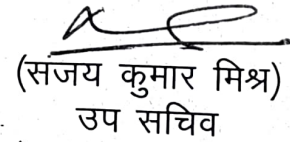 (संजय कुमार मिश्र)
उप सचिव